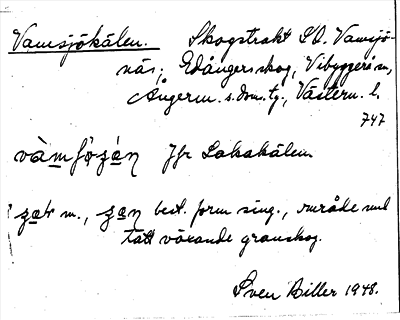 Vamsjökälen. Skogstrakt S.O. Vamsjö-
näs; Edångers skog, Vibyggerå sn,
Ångerm. s. dom. tg., Västern. l.
747
Jfr Lakakälen.
m., best. form sing., område med
tätt växande granskog.
Sven Biller 1948.